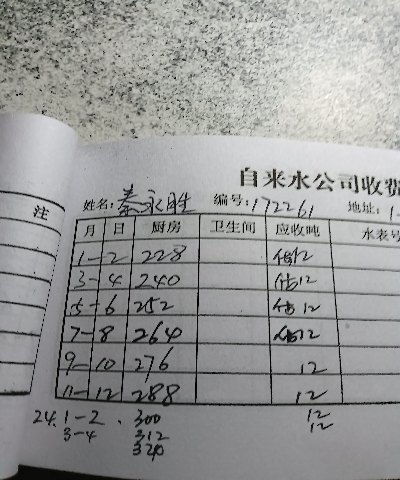 自来水公司收费
姓名:秦永胜 编号:172261 地址:1-
注
月 日 厨房 卫生间 应收吨 水表号
1-2 228 估12
3-4 240 估12
5-6 252 估12
7-8 264 估12
9-10 276 12
11-12 288 12
24. 1-2 . 300 12
3-4 312 12
320